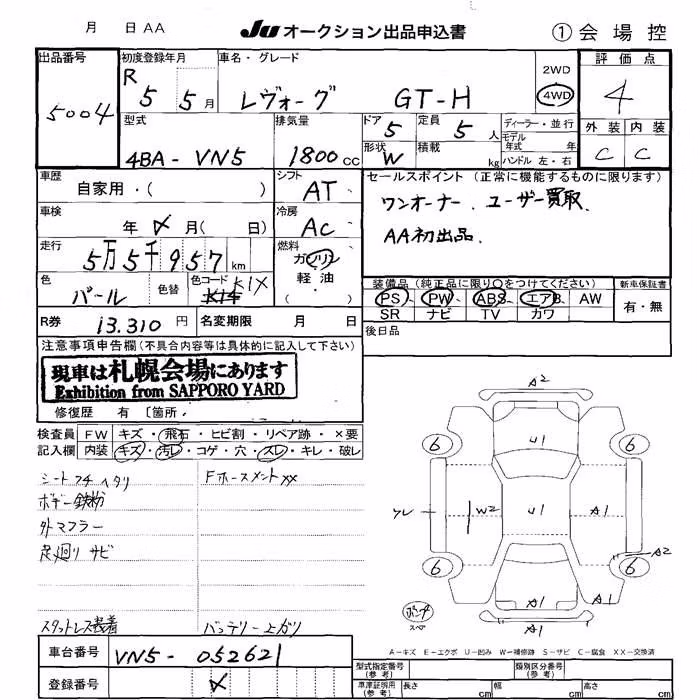 月 日 AA
JU オークション出品申込書
① 会場控
出品番号
5004
初度登録年月
R 5 5月
車名・グレード
レヴォーグ GT-H
2WD
4WD
評価点
4
外装 内装
C C
型式
4BA-VN5
排気量
1800cc
ドア
5
定員
5人
形状
W
積載
kg
ディーラー・並行
モデル
年式 年
ハンドル 左・右
車歴
自家用・( )
シフト
AT
セールスポイント(正常に機能するものに限ります)
ワンオーナー、ユーザー買取、
AA初出品、
車検
年 月( 日)
冷房
AC
走行
5万5千957km
燃料
ガソリン
軽油
( )
色
パール
色替
色コード
K1X
装備品(純正品に限り○をつけてください)
PS、PW、ABS、エアB、AW
SR ナビ TV カワ
新車保証書
有・無
R券
13.310円
名変期限 月 日
後日品
注意事項申告欄(不具合内容等は具体的に記入して下さい)
現車は札幌会場にあります
Exhibition from SAPPORO YARD
修復歴 有 〔箇所.
検査員 記入欄
FW キズ・飛石・ヒビ割・リペア跡・×要
内装 キズ・汚レ・コゲ・穴・スレ・キレ・破レ
シートフチ ヘタリ
Fホースメント××
ボデー鉄粉
外マフラー
足廻り サビ
スタットレス装着
バッテリー上ガリ
A2
6 U1 6
W2 U1 A1
6 6
A2
A1
A1
パンク
スペ
A-キズ E-エクボ U-凹み W-補修跡 S-サビ C-腐食 XX-交換済
車台番号
VN5-052621
登録番号
型式指定番号
(参考)
類別区分番号
(参考)
車庫証明用
(参考)
長さ cm
幅 cm
高さ cm